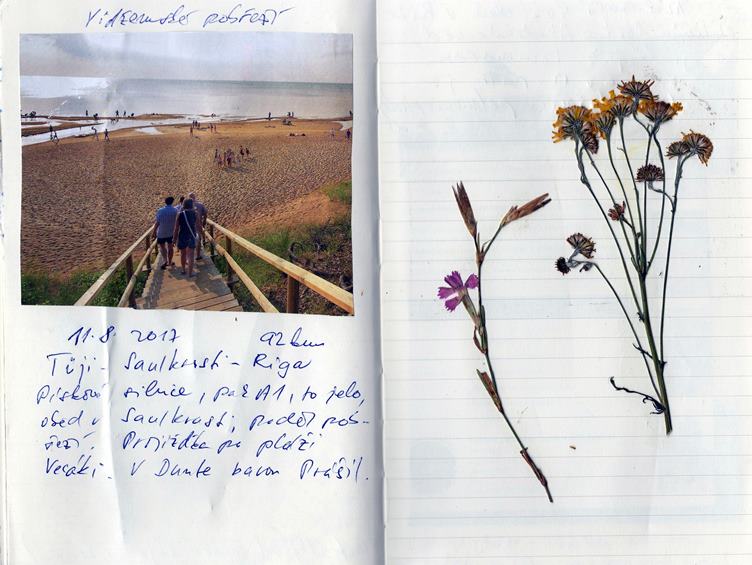 Vidzemské pobřeží
11. 8. 2017 92 km
Tūji - Saulkrasti - Riga
Písková silnice, pak A1, to jelo,
oběd v Saulkrasti, podél pob-
řeží. Projížďka po pláži
Vecāki. V Dunte baron Prášil.